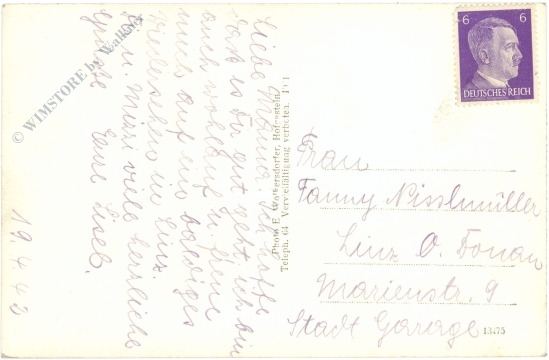 Liebe Mama. Ich hoffe
dass es Dir gut geht. Ich bin
auch wohlauf u. freue
mich auf ein baldiges
Wiedersehen in Linz.
Dir u. Mizzi viele herzliche
Grüsse Eure Liesl.
19.4.43
© WIMSTORE by Walky
Photo E. Wolkersdorfer, Hofgastein
Teleph. 64 Vervielfältigung verboten.
6 6
DEUTSCHES REICH
Frau
Fanny Nisslmüller
Linz O. Donau
Marienstr. 9
Stadt Garage
13475